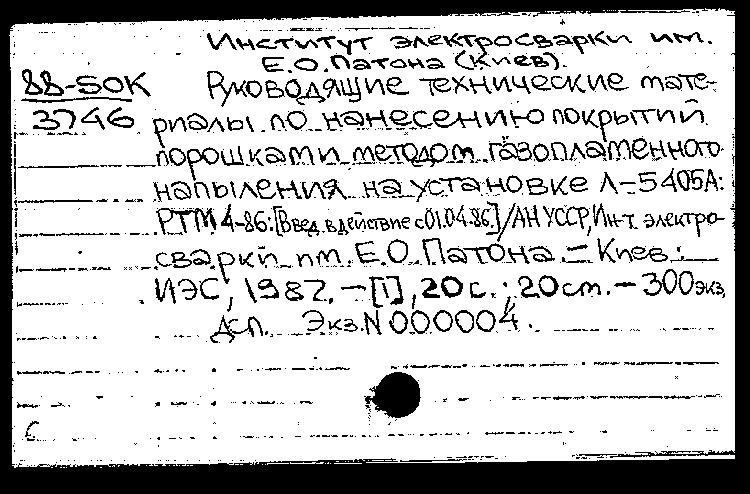 Институт электросварки им.
Е.О.Патона (Киев).
88-50К Руководящие технические мате-
3746 риалы по нанесению покрытий
порошками методом газопламенного
напыления на установке Л-5405А:
РТМ 4-86:[Введ. в действие с 01.04.86.]/АН УССР, Ин-т. электро-
сварки им. Е.О.Патона. - Киев:
ИЭС, 1987. - [1], 20 с.; 20 cm. - 300 экз.
ДСП. Экз. N 000004.
С